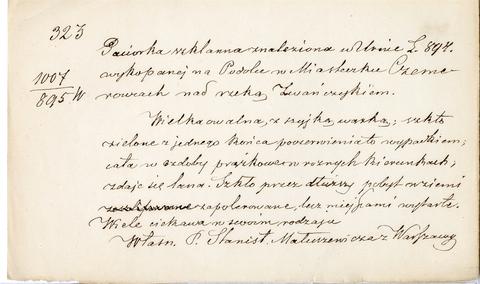 323
1007
895 W
Paciorka szklanna znaleziona w Urnie L 894.
wykopanej na Podolu w Miasteczku Czeme-
rowcach nad rzeką Zwańczykiem.
Wielka owalna, z szyjką wązką; szkło
zielone z jednego końca poczerwieniało wypadkiem;
cała w ozdoby prążkowe w roznych kierunkach;
zdaje się lana. Szkło przez dłuższy pobyt w ziemi
zapolerowane, lecz miejscami wytarte.
Wiele ciekawa w swoim rodzaju
Własn. P. Stanisł. Matuszewicza z Warszawy